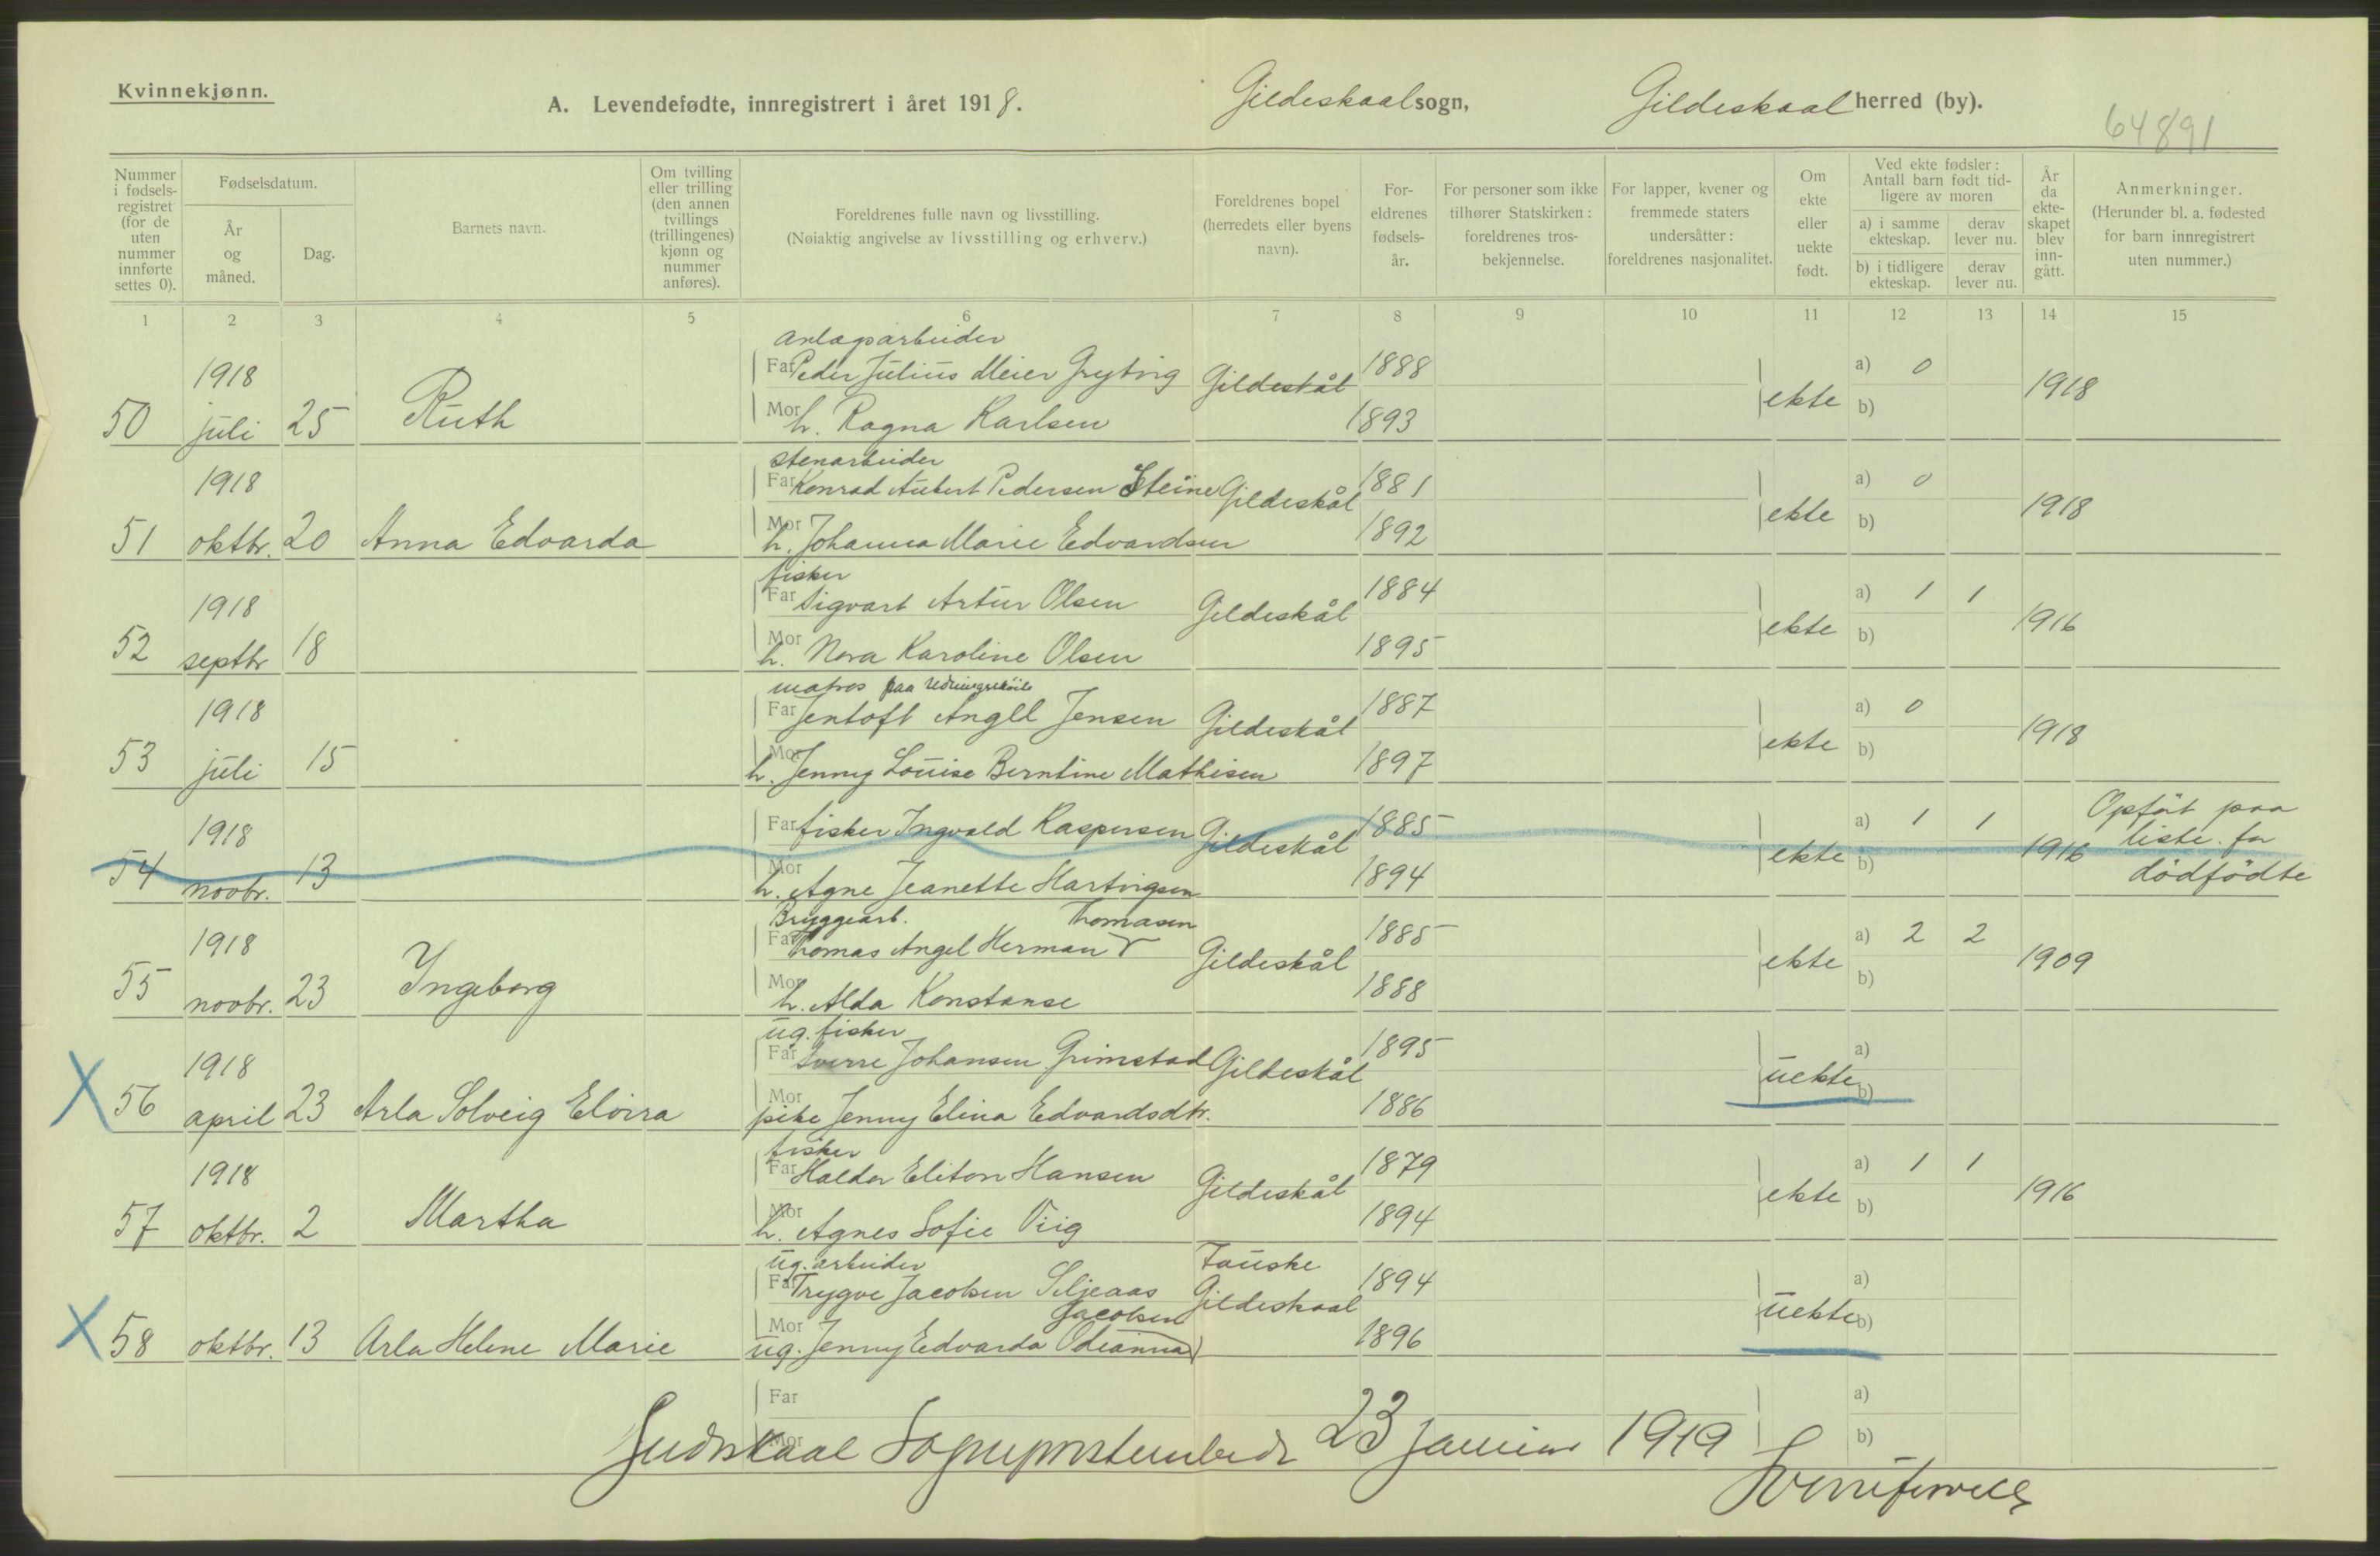 Kvinnekjønn.
A. Levendefødte, innregistrert i året 1918.
Gildeskaal sogn,
Gildeskaal herred (by).
64891
Nummer i fødsels-registret (for de uten nummer innførte settes 0).
Fødselsdatum.
År og måned.
Dag.
Barnets navn.
Om tvilling eller trilling (den annen tvillings (trillingenes) kjønn og nummer anføres).
Foreldrenes fulle navn og livsstilling.
(Nøiaktig angivelse av livsstilling og erhverv.)
Foreldrenes bopel (herredets eller byens navn).
For-eldrenes fødsels-år.
For personer som ikke tilhører Statskirken: foreldrenes tros-bekjennelse.
For lapper, kvener og fremmede staters undersåtter: foreldrenes nasjonalitet.
Om ekte eller uekte født.
Ved ekte fødsler: Antall barn født tid-ligere av moren
a) i samme ekteskap.
derav lever nu.
b) i tidligere ekteskap.
derav lever nu.
År da ekte-skapet blev inn-gått.
Anmerkninger.
(Herunder bl. a. fødested for barn innregistrert uten nummer.)
1 2 3 4 5 6 7 8 9 10 11 12 13 14 15
anlægsarbeider
1918 Far Peder Julius Meier Grytvig Gildeskål 1888 a) 0
50 juli 25 Ruth Mor h. Ragna Karlsen 1893 ekte b) 1918
stenarbeider
1918 Far Konrad Aubert Pedersen Steine Gildeskål 1881 a) 0
51 oktbr. 20 Anna Edvarda Mor h. Johanna Marie Edvardsen 1892 ekte b) 1918
fisker
1918 Far Sigvart Artur Olsen Gildeskål 1884 a) 1 1
52 septbr 18 Mor h. Nora Karoline Olsen 1895 ekte b) 1916
matros paa redningsskøite
1918 Far Jentoft Angell Jensen Gildeskål 1887 a) 0
53 juli 15 Mor h. Jenny Louise Berntine Mathisen 1897 ekte b) 1918
1918 Far fisker Ingvald Kaspersen Gildeskål 1885 a) 1 1 Opført paa
54 novbr. 13 Mor h. Agne Jeanette Hartvigsen 1894 ekte b) 1916 liste for
dödfödte
Bryggearb. Thomasen
1918 Far Thomas Angel Herman Gildeskål 1885 a) 2 2
55 novbr. 23 Ingeborg Mor h. Alda Konstanse 1888 ekte b) 1909
ug. fisker
1918 Far Sverre Johansen Grimstad Gildeskål 1895 a)
X 56 april 23 Arla Solveig Elvira Mor pike Jenny Elina Edvardsdtr. 1886 uekte b)
fisker
1918 Far Haldor Eliton Hansen Gildeskål 1879 a) 1 1
57 oktbr. 2 Martha Mor h. Agnes Sofie Viig 1894 ekte b) 1916
ug. arbeider Fauske
Far Trygve Jacobsen Siljeaas Gildeskaal 1894 a)
Jacobsen
X 58 oktbr. 13 Arla Helene Marie Mor ug. Jenny Edvarda Odianna 1896 uekte b)
Far a)
Mor b)
Gildeskaal Sogneprestembede 23 januar 1919